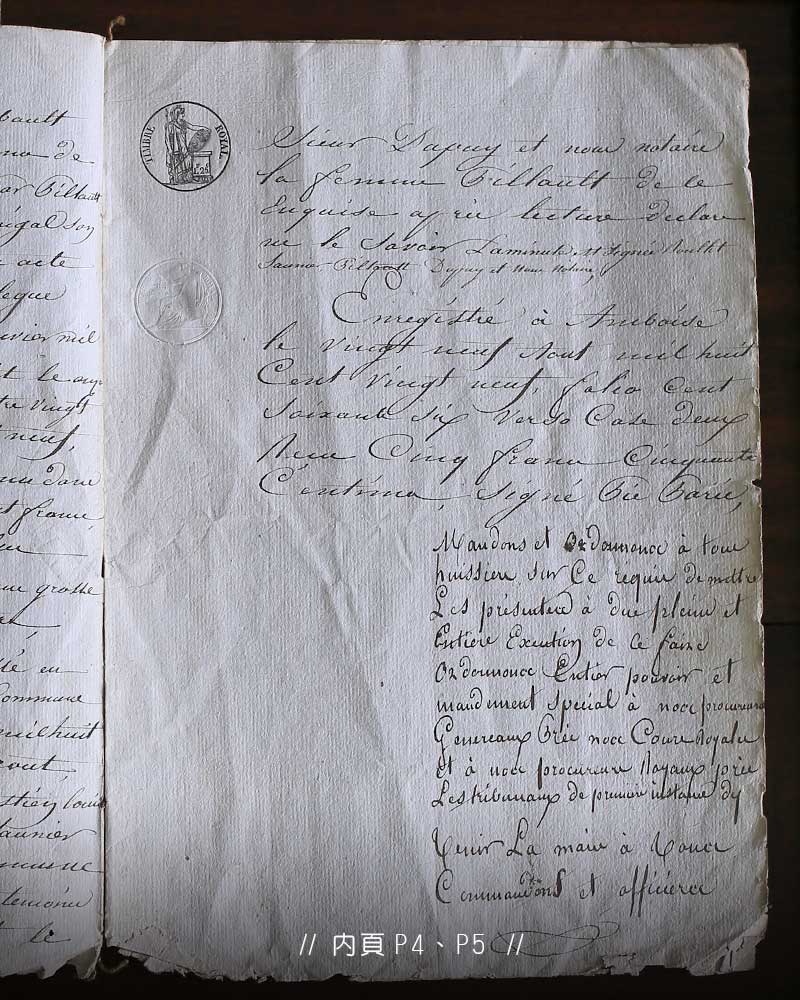 bault
de
Pillault
son
acte
legue
janvier mil
et le
vingt
neuf,
dans
francs,
grosse
en
Commune
mil huit
aout,
louis
saunier
commune
temoins
et le
TIMBRE ROYAL
Sieur Dupuy et nous notaire
la femme Pillault de ce
Enquise après lecture declare
ne le Savoir Laminute est Signée Roullet
Saunier Pillault Dupuy et nous Notaire,
Enregistré à Amboise
le vingt neuf Aout mil huit
Cent vingt neuf, folio Cent
Soixante six Verso Case deux
Recu Cinq francs Cinquante
Centimes, Signé
Mandons et Ordonnons à tous
huissiers sur Ce requis de mettre
Les présentes à due pleine et
Entiere Execution de Ce faire
Ordonnons Entier pouvoir et
mandement special à nos procureurs
Genereaux Près nos Cours Royales
et à nos procureurs Royaux près
Les tribunaux de premiere instance dy
Tenir La main à Tous
Commandons et officiers
// 內頁 P4、P5 //